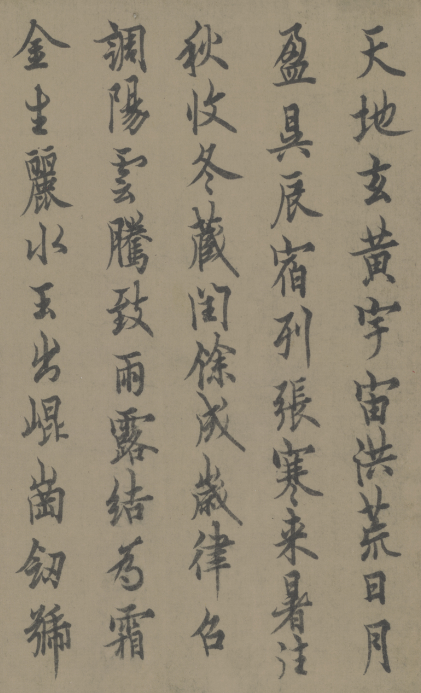 天地玄黄宇宙洪荒日月
盈昃辰宿列張寒来暑往
秋收冬蔵閏餘成歳律召
調陽雲騰致雨露結為霜
金生麗水玉出崐崗劒號